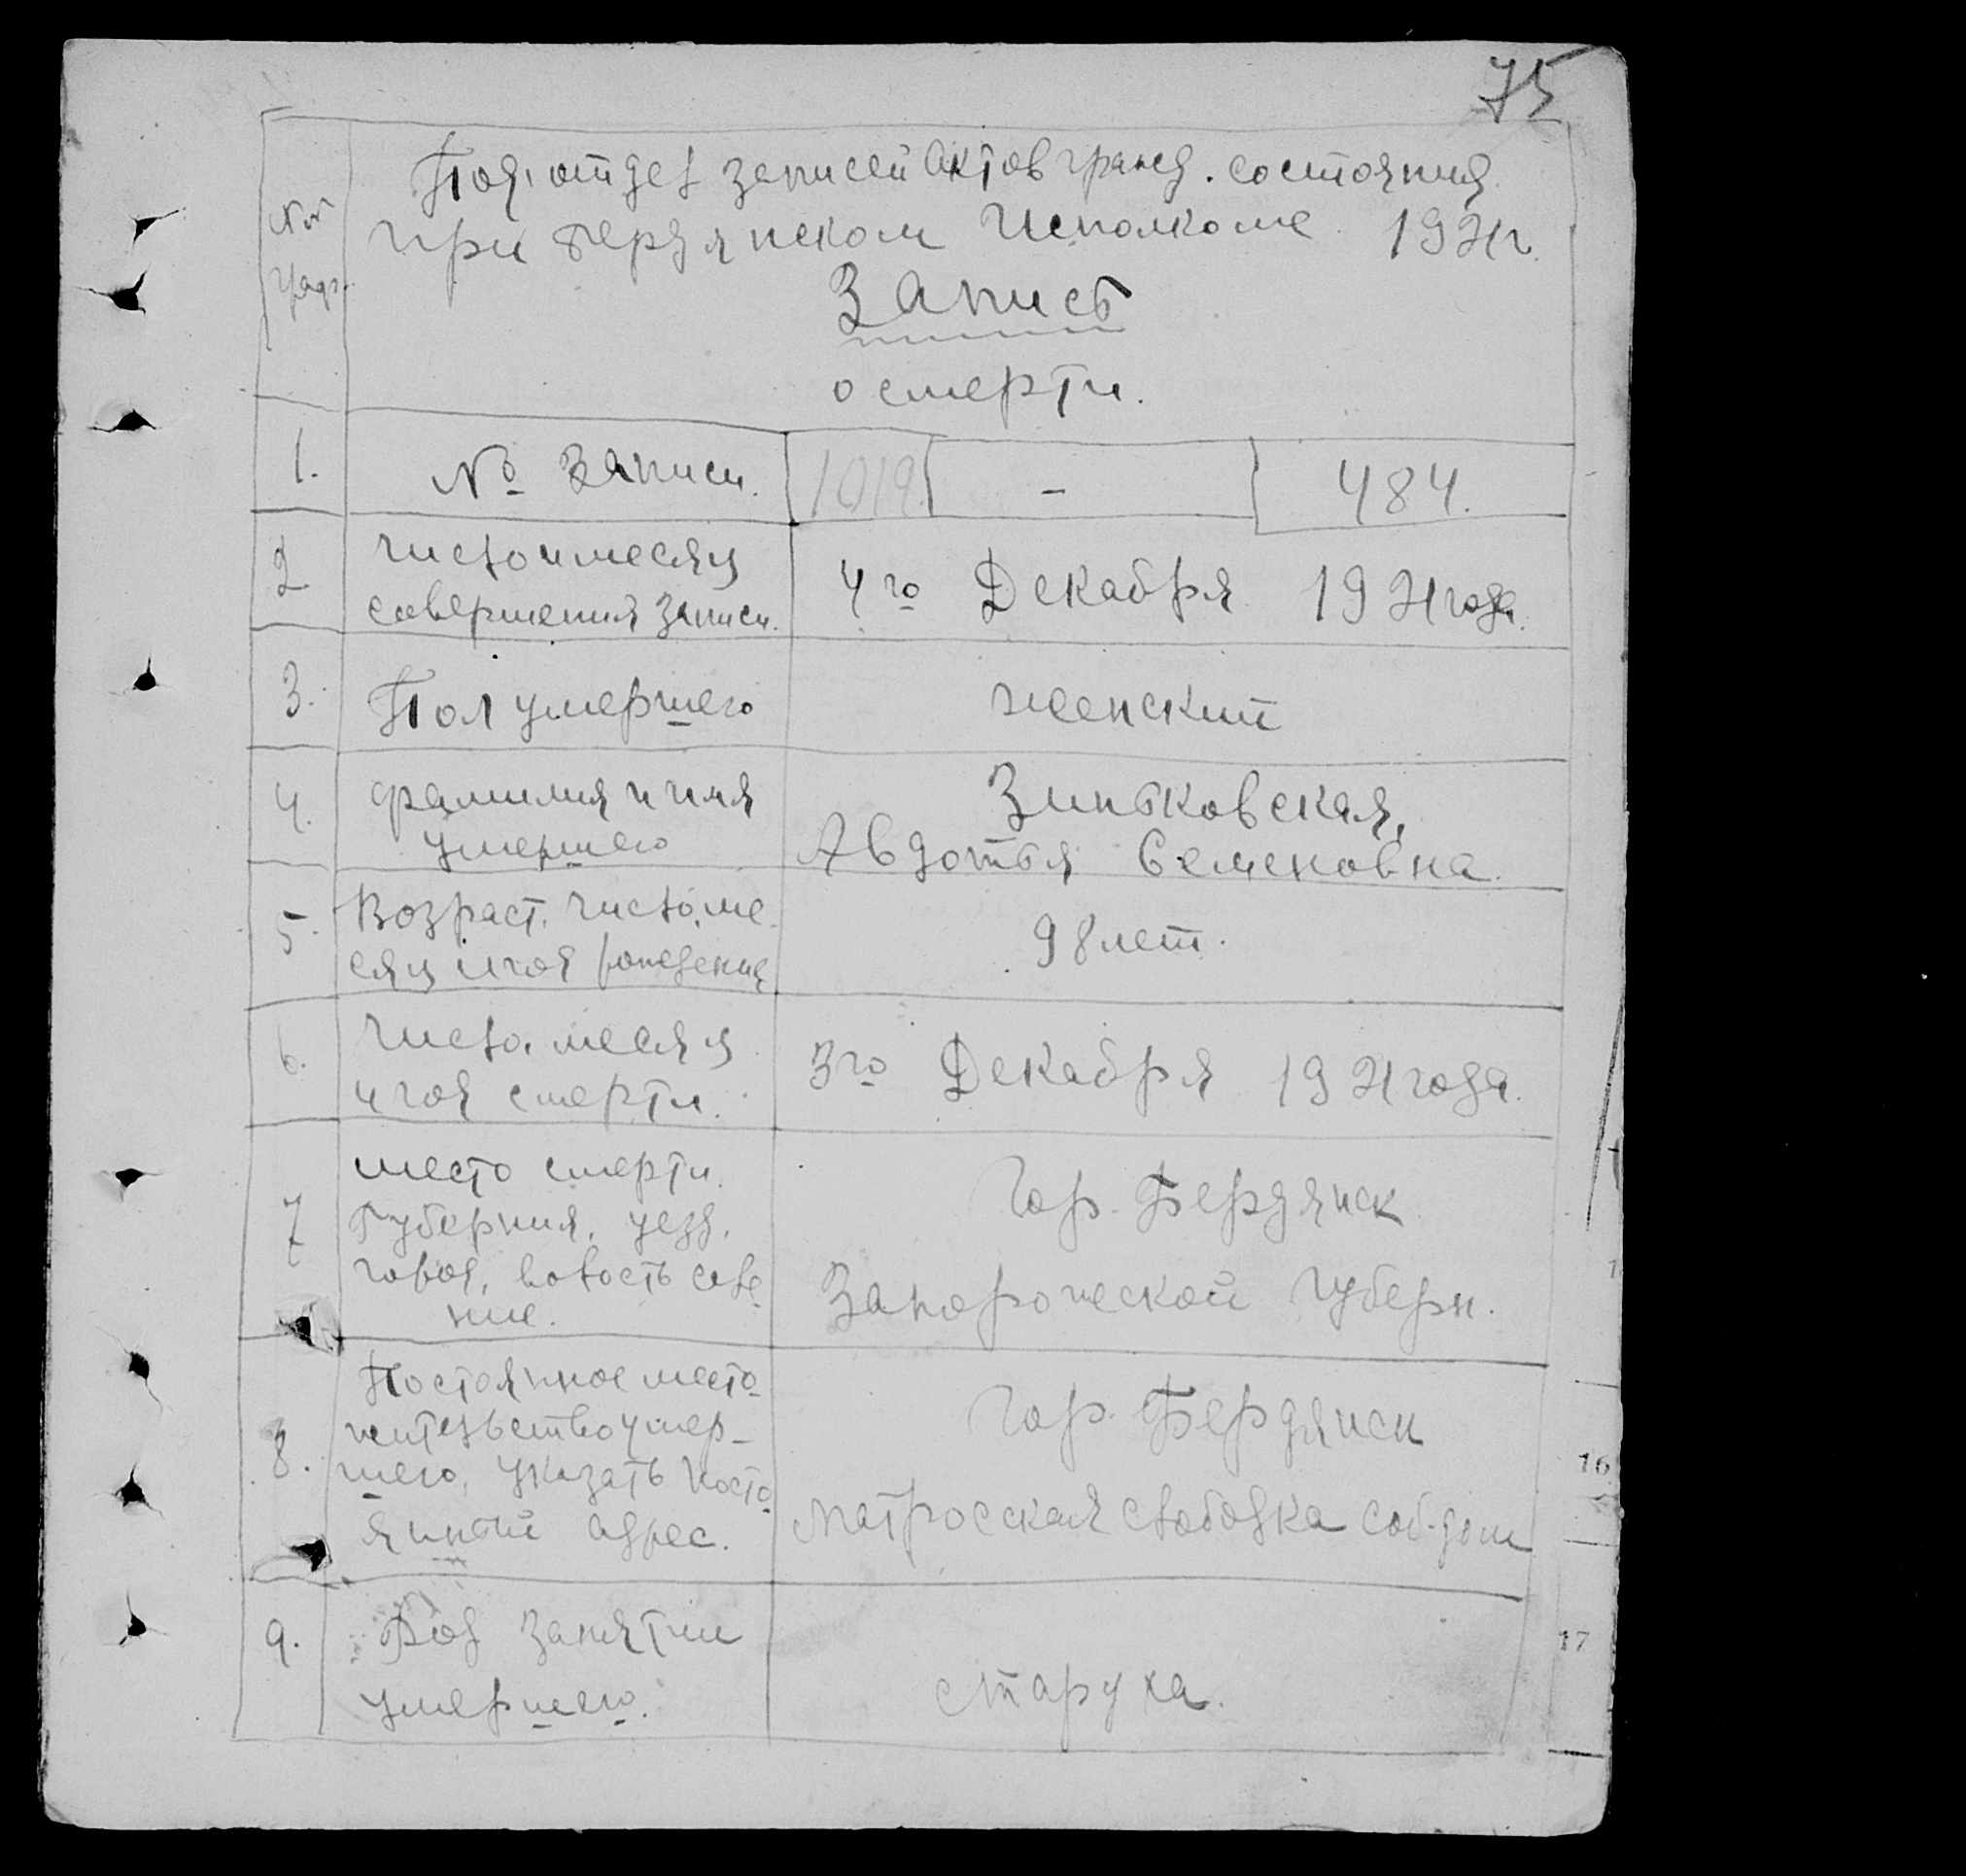 75
№№
граф.
Под. отдел записей Актов гражд. состояния
при Бердянском Исполкоме 1921 г.
Запись
о смерти.
1. № записи. 1019. - 484.
2 число и месяц
совершения записи.
4го Декабря 1921 года.
3. Пол умершего женский
4. фамилия и имя
умершего
Зиньковская,
Авдотья Семеновна.
5. Возраст. число, ме
сяц и год рождения
98 лет.
6. число, месяц
и год смерти.
3го Декабря 1921 года.
7 место смерти.
Губерния, уезд,
город, волость селе
ние.
Гор. Бердянск
Запорожской Губерн.
8. Постоянное место
жительство умер-
шего, указать посто
янный адрес.
Гор. Бердянск
Матросская слободка соб. дом
9. Род занятии
умершего.
старуха.
16
17